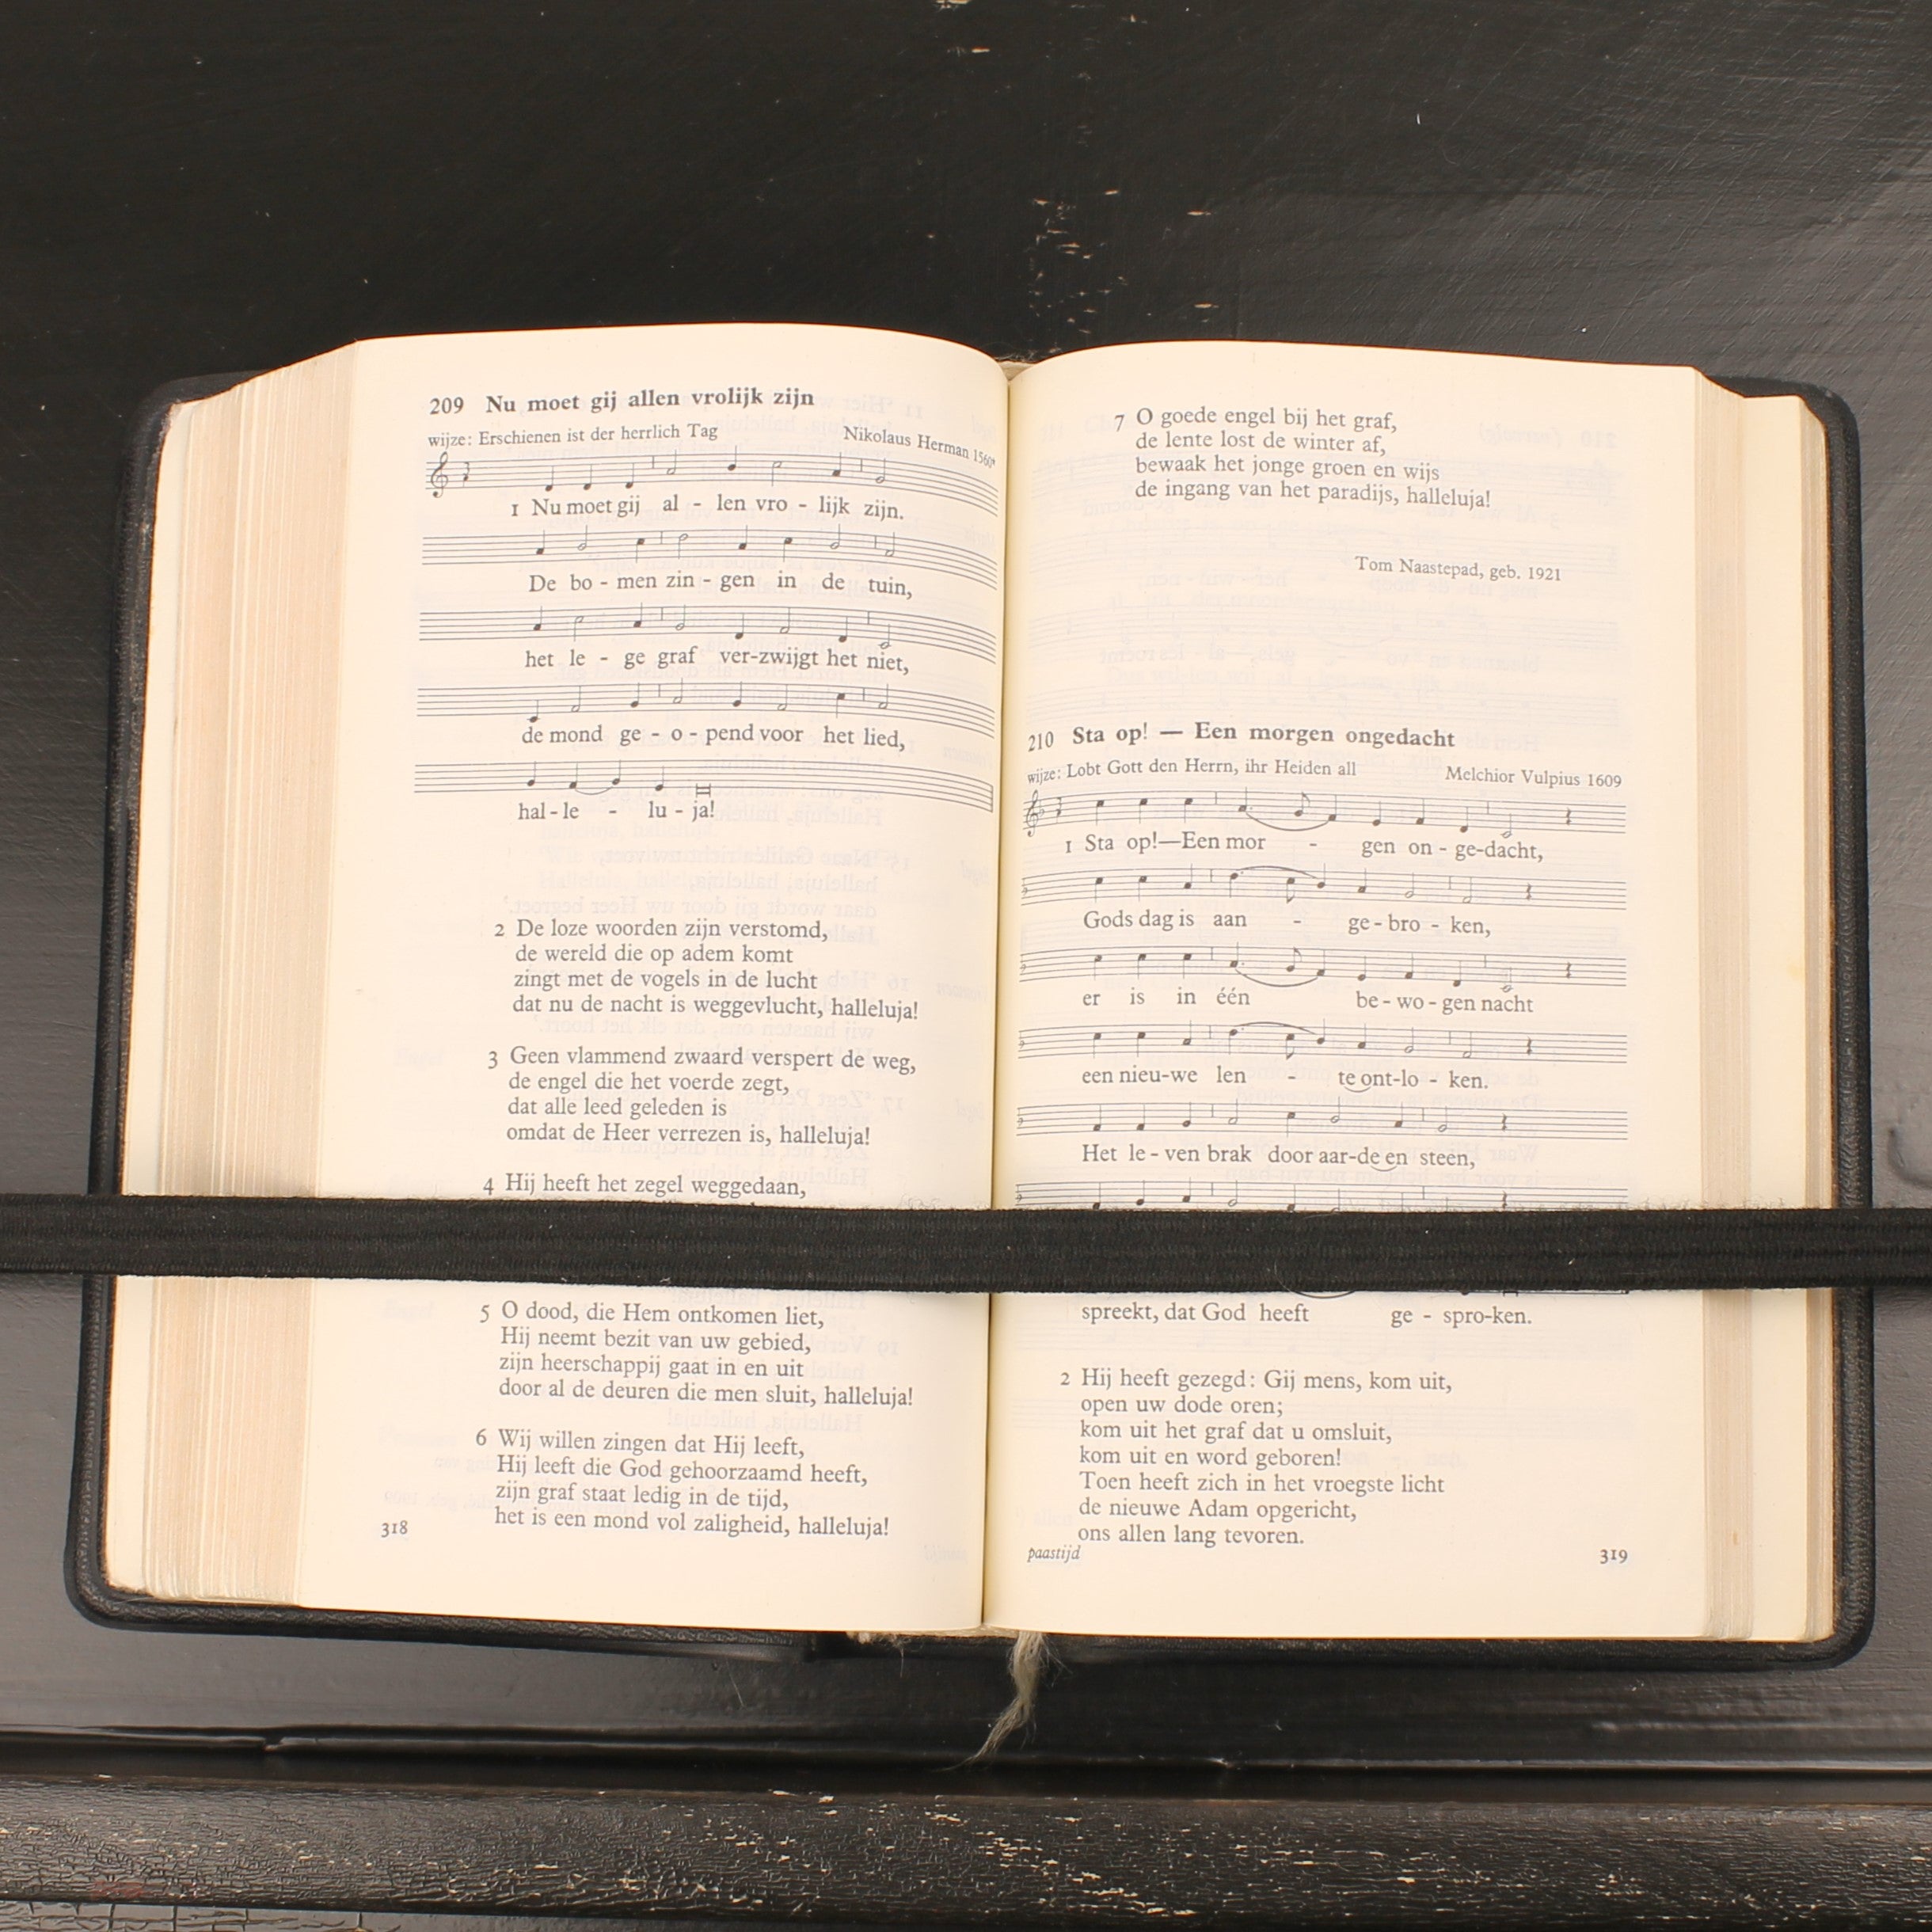 209 Nu moet gij allen vrolijk zijn
wijze: Erschienen ist der herrlich Tag Nikolaus Herman 1560
1 Nu moet gij al - len vro - lijk zijn.
De bo - men zin - gen in de tuin,
het le - ge graf ver-zwijgt het niet,
de mond ge - o - pend voor het lied,
hal - le - lu - ja!
2 De loze woorden zijn verstomd,
de wereld die op adem komt
zingt met de vogels in de lucht
dat nu de nacht is weggevlucht, halleluja!
3 Geen vlammend zwaard verspert de weg,
de engel die het voerde zegt,
dat alle leed geleden is
omdat de Heer verrezen is, halleluja!
4 Hij heeft het zegel weggedaan,
5 O dood, die Hem ontkomen liet,
Hij neemt bezit van uw gebied,
zijn heerschappij gaat in en uit
door al de deuren die men sluit, halleluja!
6 Wij willen zingen dat Hij leeft,
Hij leeft die God gehoorzaamd heeft,
zijn graf staat ledig in de tijd,
het is een mond vol zaligheid, halleluja!
318
7 O goede engel bij het graf,
de lente lost de winter af,
bewaak het jonge groen en wijs
de ingang van het paradijs, halleluja!
Tom Naastepad, geb. 1921
210 Sta op! — Een morgen ongedacht
wijze: Lobt Gott den Herrn, ihr Heiden all Melchior Vulpius 1609
1 Sta op!—Een mor - gen on - ge-dacht,
Gods dag is aan - ge - bro - ken,
er is in één be - wo - gen nacht
een nieu-we len - te ont-lo - ken.
Het le - ven brak door aar-de en steen,
spreekt, dat God heeft ge - spro-ken.
2 Hij heeft gezegd: Gij mens, kom uit,
open uw dode oren;
kom uit het graf dat u omsluit,
kom uit en word geboren!
Toen heeft zich in het vroegste licht
de nieuwe Adam opgericht,
ons allen lang tevoren.
paastijd 319